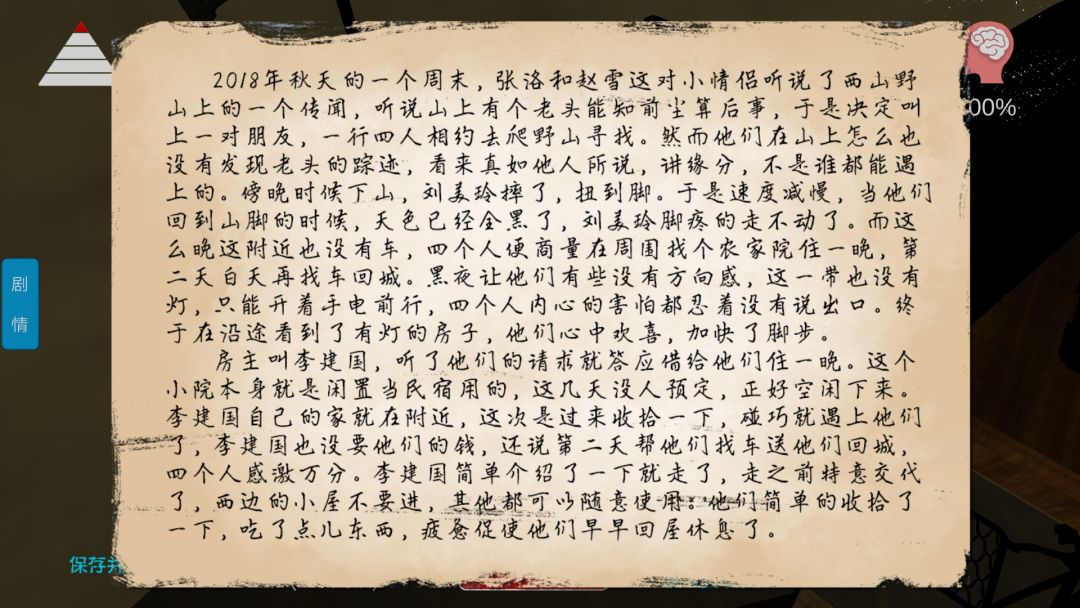 2018年秋天的一个周末，张洛和赵雪这对小情侣听说了西山野
山上的一个传闻，听说山上有个老头能知前尘算后事，于是决定叫
上一对朋友，一行四人相约去爬野山寻找。然而他们在山上怎么也
没有发现老头的踪迹，看来真如他人所说，讲缘分，不是谁都能遇
上的。傍晚时候下山，刘美玲摔了，扭到脚。于是速度减慢，当他们
回到山脚的时候，天色已经全黑了，刘美玲脚疼的走不动了。而这
么晚这附近也没有车，四个人便商量在周围找个农家院住一晚，第
二天白天再找车回城。黑夜让他们有些没有方向感，这一带也没有
灯，只能开着手电前行，四个人内心的害怕都忍着没有说出口。终
于在沿途看到了有灯的房子，他们心中欢喜，加快了脚步。
房主叫李建国，听了他们的请求就答应借给他们住一晚。这个
小院本身就是闲置当民宿用的，这几天没人预定，正好空闲下来。
李建国自己的家就在附近，这次是过来收拾一下，碰巧就遇上他们
了，李建国也没要他们的钱，还说第二天帮他们找车送他们回城，
四个人感激万分。李建国简单介绍了一下就走了，走之前特意交代
了，西边的小屋不要进，其他都可以随意使用。他们简单的收拾了
一下，吃了点儿东西，疲惫促使他们早早回屋休息了。
00%
剧
情
保存并